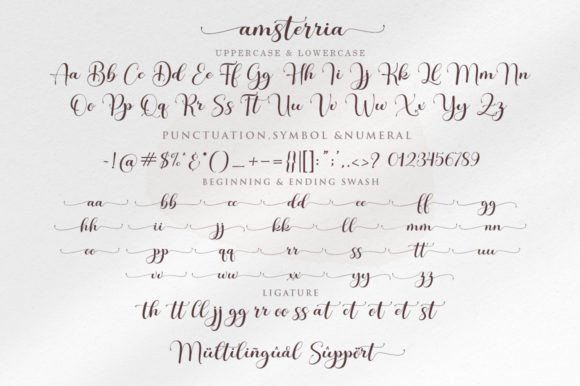 amsterria
UPPERCASE & LOWERCASE
Aa Bb Cc Dd Ee Ff Gg Hh Ii Jj Kk Ll Mm Nn
Oo Pp Qq Rr Ss Tt Uu Vv Ww Xx Yy Zz
PUNCTUATION,SYMBOL &NUMERAL
~!@#$%^&*()_+-={}|[]:";',.<>? 0123456789
BEGINNING & ENDING SWASH
aa bb cc dd ee ff gg
hh ii jj kk ll mm nn
oo pp qq rr ss tt uu
vv ww xx yy zz
LIGATURE
th tt ll jj gg rr oo ss at st
Mültilîñgûâl Sûppört